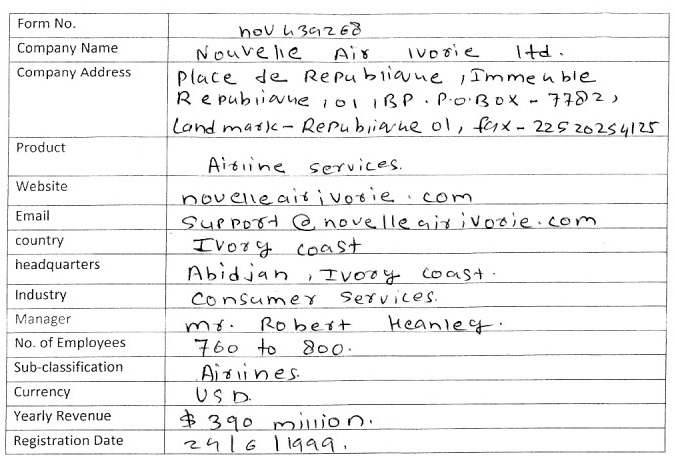 Form No. nov439268
Company Name Nouvelle Air ivorie ltd.
Company Address Place de Republiaue , Immeuble
Republiaue , 01 , BP . P.O.BOX - 7782 ,
Landmark - Republiaue 01 , fax - 22520254125
Product Airline services.
Website novelleairivorie . com
Email support @ novelleairivorie.com
country Ivory coast
headquarters Abidjan , Ivory coast .
Industry Consumer Services.
Manager mr. Robert Heanley .
No. of Employees 760 to 800.
Sub-classification Airlines.
Currency USD.
Yearly Revenue $ 390 million.
Registration Date 24/6/1999.